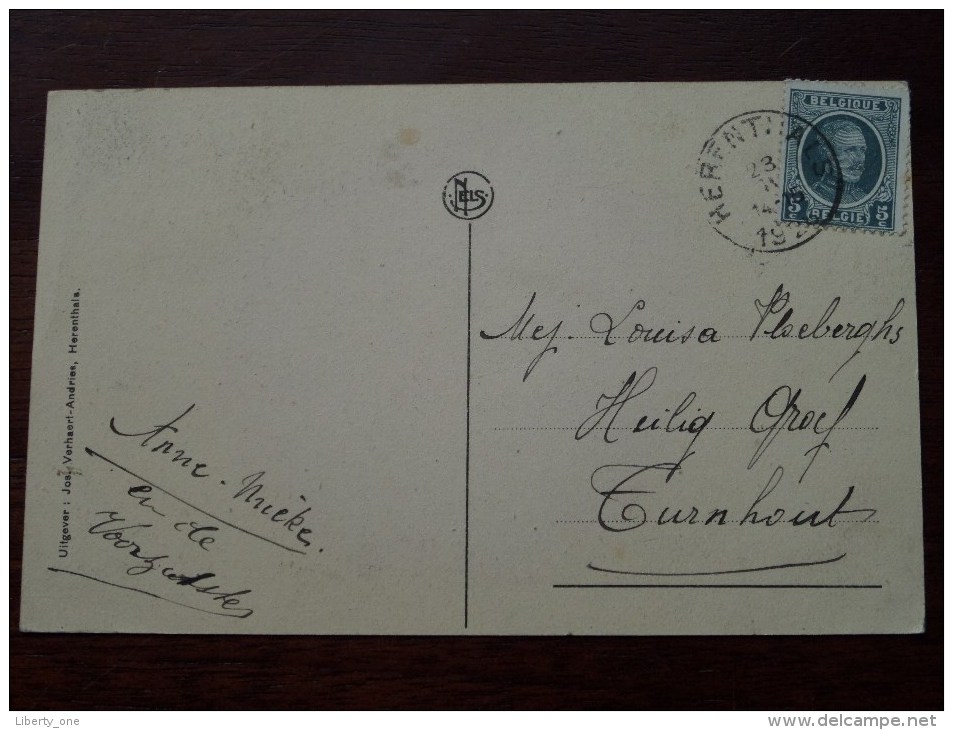 BELGIQUE
5c 5c
BELGIE
HERENTHALS
23
14
192
NELS
Mej. Louisa Vlseberghs
Heilig Graf
Turnhout
Anne-Mieke.
en de
Uitgever : Jos. Verhaert-Andries, Herenthals.
Liberty_one
www.delcampe.net